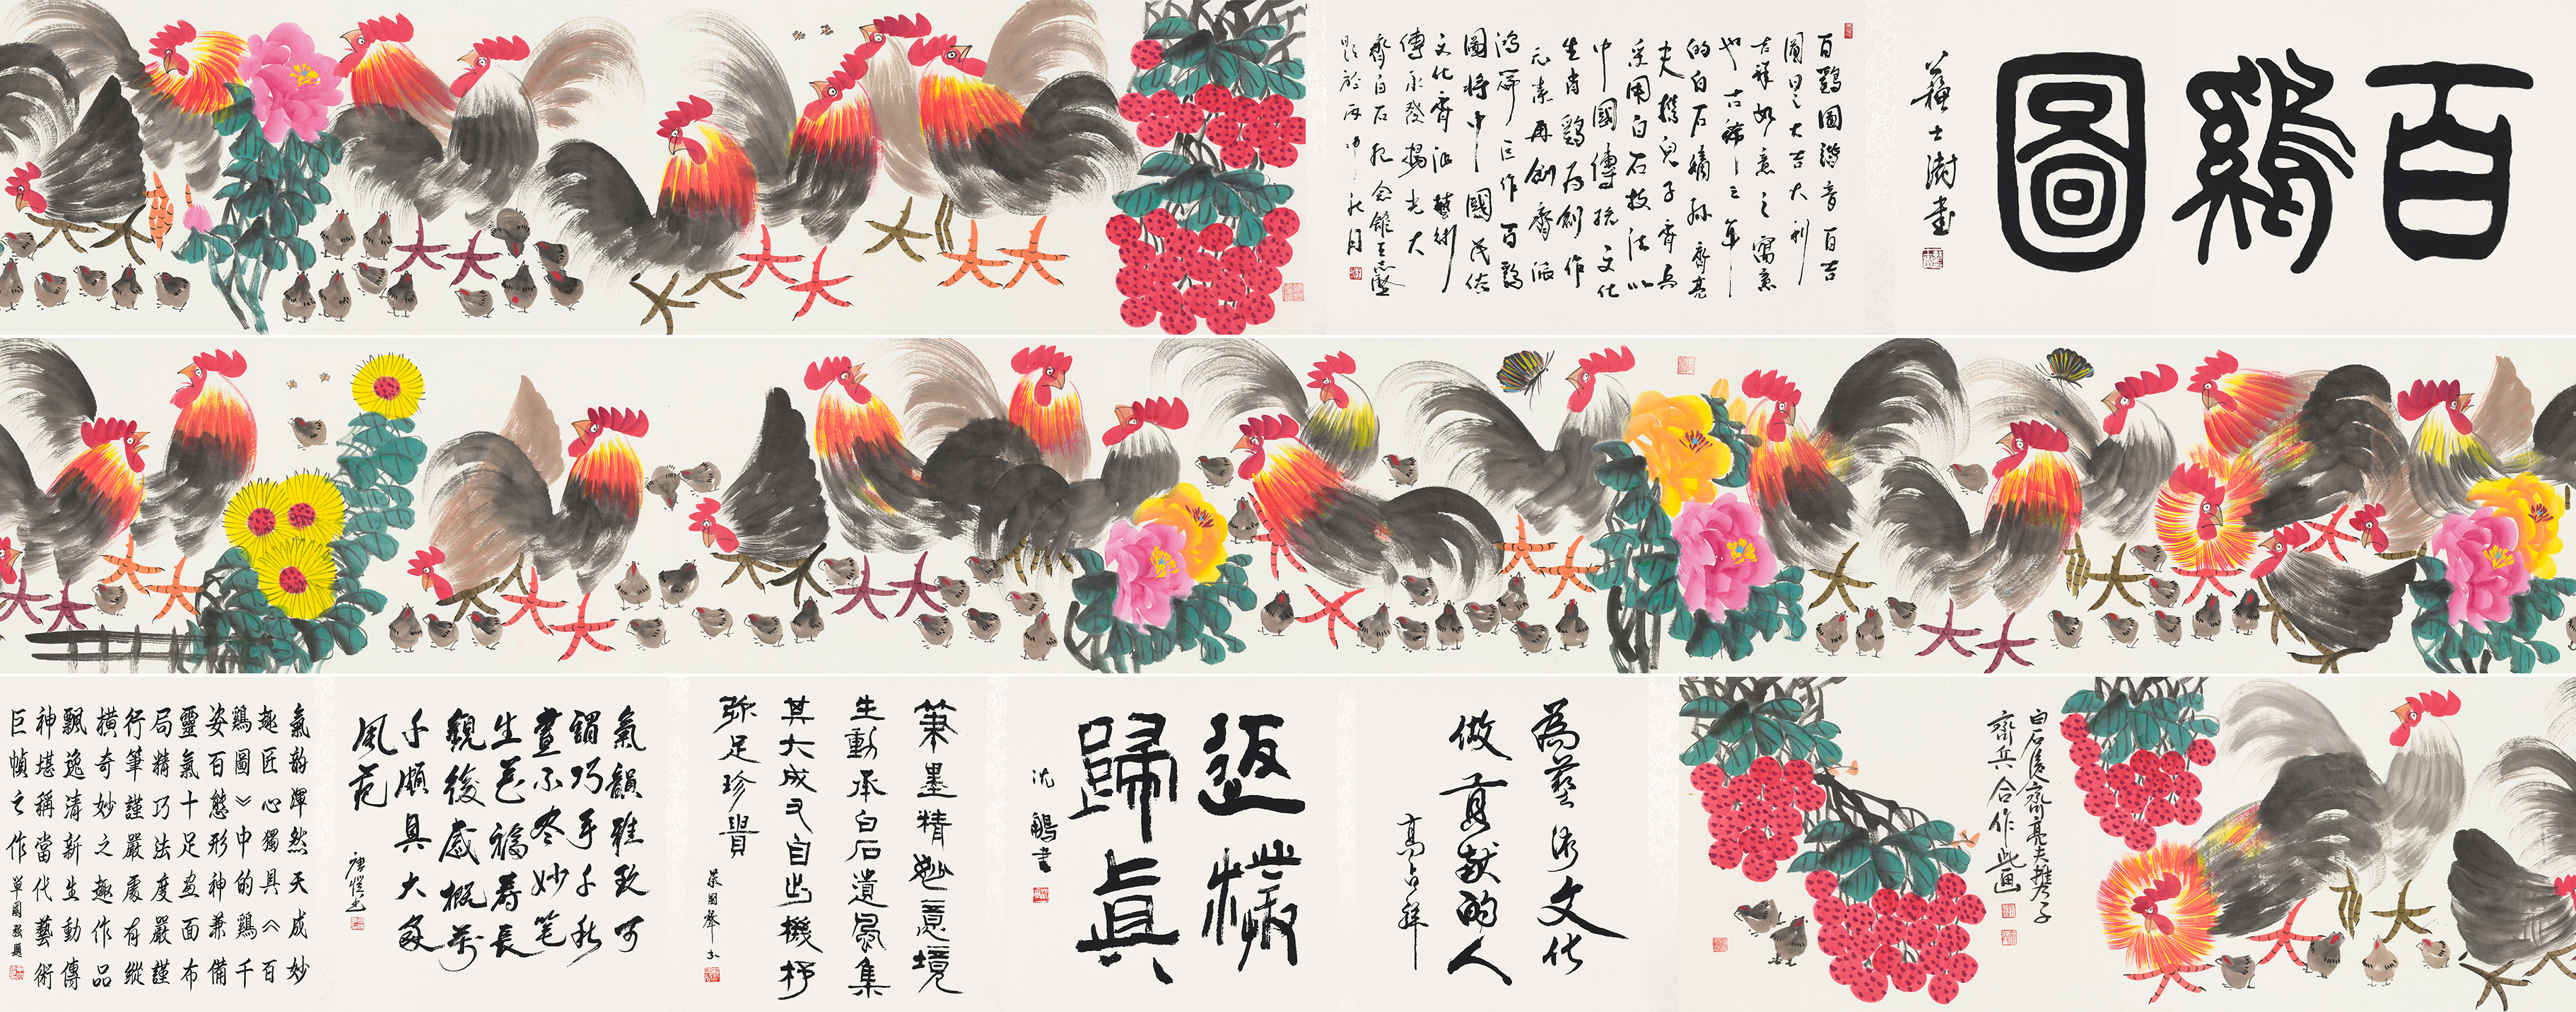 百鷄圖
蘇士澍書
百鷄圖諧音百吉
大吉大利
吉祥如意之寓意
也古稀之年
的白石嫡孫齊亮
夫攜兒子齊兵
采用白石技法以
中國傳統文化
生肖鷄為創作
元素再創齊派
鴻篇巨作百鷄
圖將中國民俗
文化齊派藝術
傳承發揚光大
齊白石紀念館
題於丙申秋月
白石後人齊亮夫攜子
齊兵合作此画
為藝術文化
做貢献的人
高占祥
返樸
歸眞
沈鵬書
筆墨精妙意境
生動承白石遺風集
其大成又自出機杼
弥足珍貴
氣韻雅致可
謂巧手千秋
畫不尽妙笔
生花福寿長
觀後感概万
千頗具大家
風范
氣韵渾然天成妙
趣匠心獨具《百
鷄圖》中的鷄千
姿百態形神兼備
靈氣十足画面布
局精巧法度嚴謹
行筆謹嚴處有縱
橫奇妙之趣作品
飄逸清新生動傳
神堪稱當代藝術
巨幀之作 單國强題